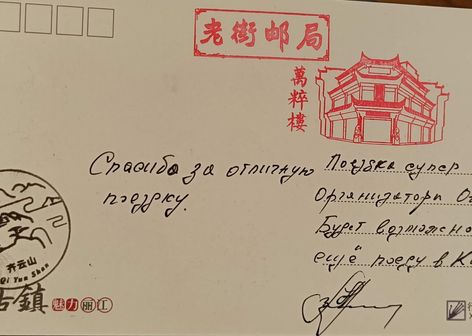 老街邮局
萬粹樓
Спасибо за отличную
поездку.
Поездка супер
Организатори О
Будет возможно
ещё поеду в К
齐云山
Qi Yun Shan
古鎮
魅力丽江